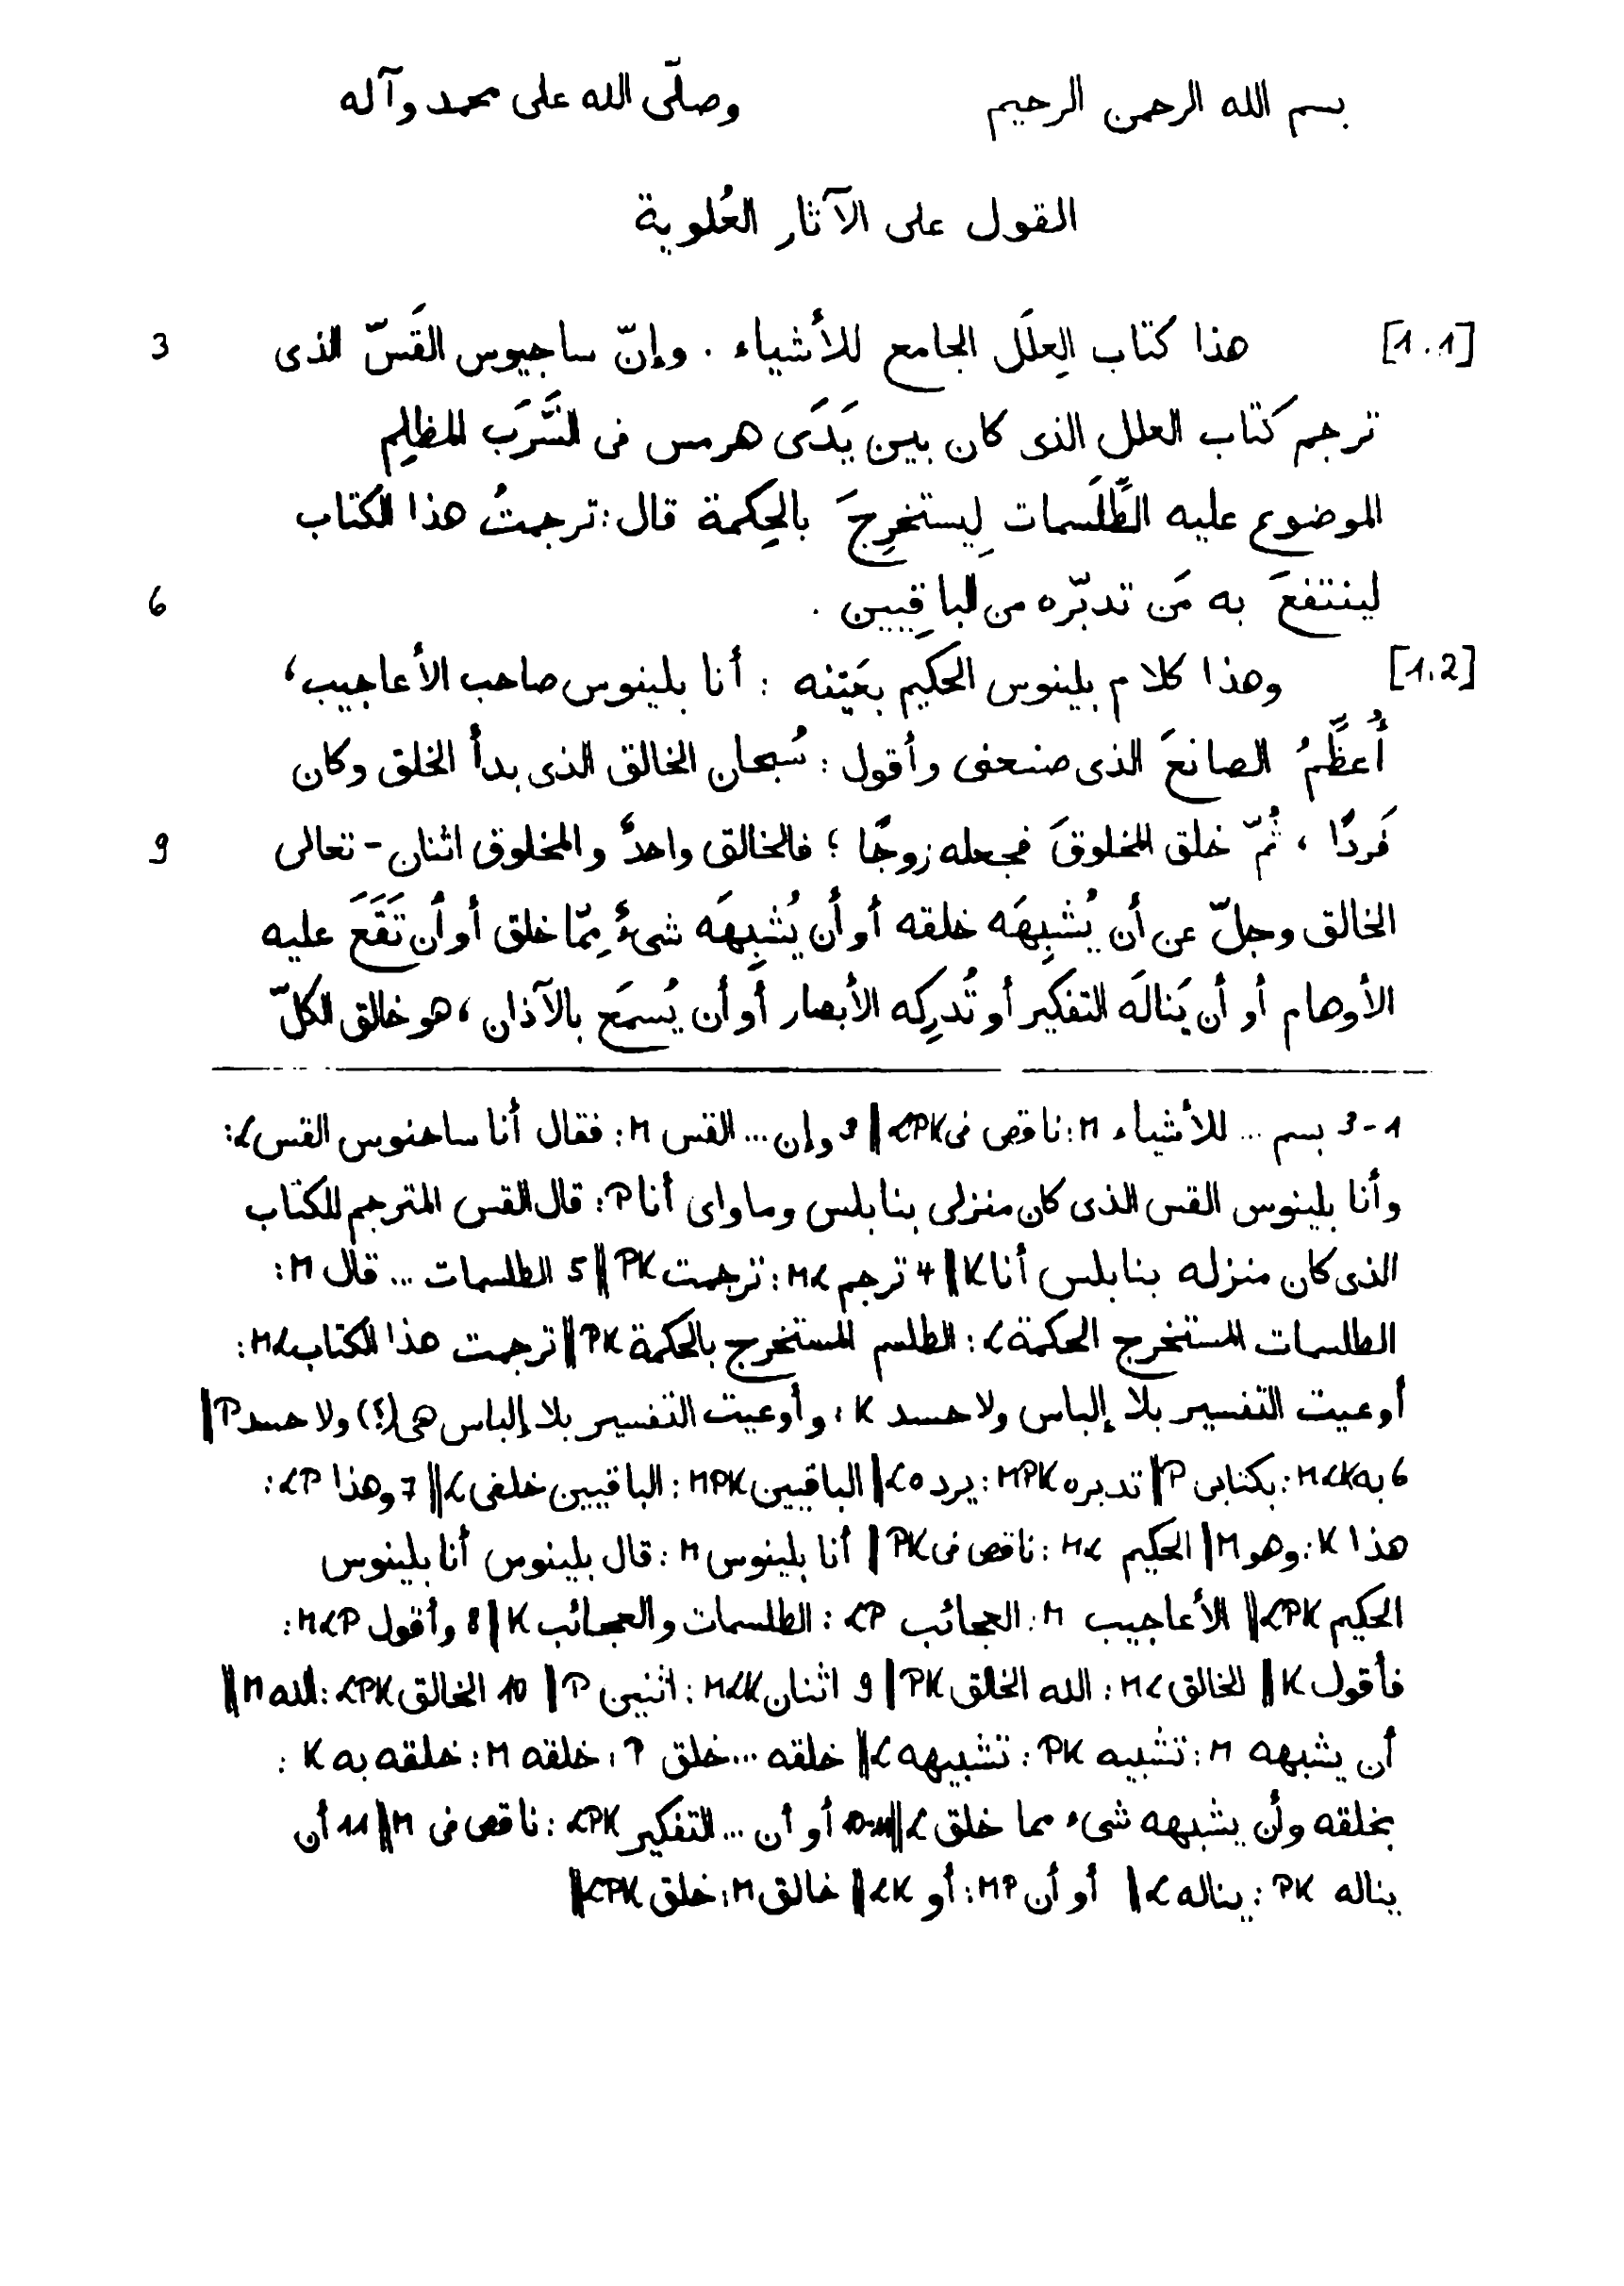 بسم الله الرحمن الرحيم وصلّى الله على محمد وآله
القول على الآثار العُلوية
[1.1] هذا كتاب العِلَل الجامع للأشياء . وإنّ ساجيوس القَسّ الذى 3
ترجم كتاب العلل الذى كان بين يَدَى هرمس فى السَّرَب المظلِم
الموضوع عليه الطَّلَسمات لِيستخرِجَ بالحِكمة قال : ترجمتُ هذا الكتاب
لينتفعَ به مَن تدبّره من الباقِيين . 6
[1.2] وهذا كلام بلينوس الحكيم بعَينه : أنا بلينوس صاحب الأعاجيب ،
أُعظِّمُ الصانعَ الذى صنعنى وأقول : سُبحان الخالق الذى بدأ الخلق وكان
فَردًا ، ثُمّ خلق المخلوقَ فجعله زوجًا ؛ فالخالق واحدٌ والمخلوق اثنان - تعالى 9
الخالق وجلّ عن أن يُشبِهَه خلقه أو أن يُشبِهَه شىءٌ مِمّا خلق أو أن تَقَعَ عليه
الأوهام أو أن يَنالَه التفكير أو تُدرِكه الأبصار أو أن يُسمَع بالآذان ، هو خالق الكلّ
1-3 بسم ... للأشياء M : ناقص فى LPK || 3 وإن ... القس M : فقال أنا ساحنوس القس L :
وأنا بلينوس القس الذى كان منزلى بنابلس وماواى أنا P : قال القس المترجم للكتاب
الذى كان منزله بنابلس أنا K || 4 ترجم ML : ترجمت PK || 5 الطلسمات ... قال M :
الطلسمات المستخرج الحكمة L : الطلسم المستخرج بالحكمة PK || ترجمت هذا الكتاب ML :
أوعيت التفسير بلا إلباس ولا حسد K : وأوعيت التفسير بلا إلباس هى (؟) ولا حسد P ||
6 به MLK : بكتابى P || تدبره MPK : يرده L || الباقيين MPK : الباقيين خلفى L || 7 وهذا LP :
هذا K : وهو M || الحكيم ML : ناقص فى PK || أنا بلينوس M : قال بلينوس أنا بلينوس
الحكيم LPK || الأعاجيب M : العجائب LP : الطلسمات والعجائب K || 8 وأقول MLP :
فأقول K || الخالق ML : الله الخالق PK || 9 اثنان MLK : اثنين P || 10 الخالق LPK : الله M ||
أن يشبهه M : تشبيه PK : تشبيهه L || خلقه ... خلق P : خلقه M : خلقه به K :
بخلقه وأن يشبهه شىء مما خلق L || 10-11 أو أن ... التفكير LPK : ناقص فى M || 11 أن
يناله PK : يناله L || أو أن MP : أو LK || خالق M : خلق LPK ||